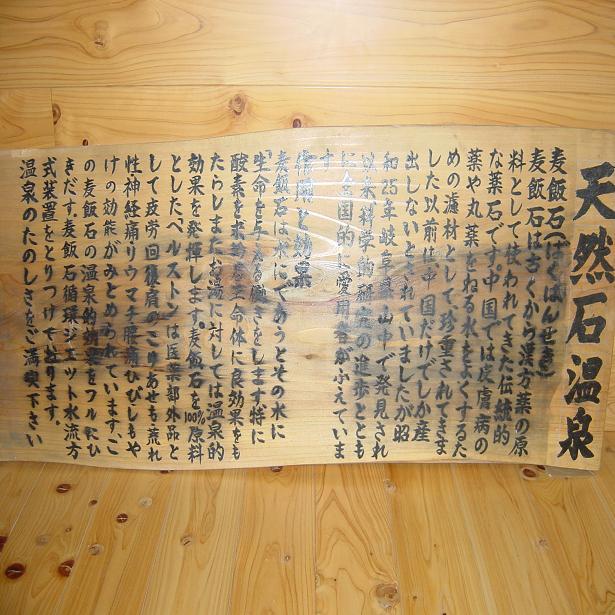 天然石温泉
麦飯石(ばくはんせき)
麦飯石は古くから漢方薬の原
料として使われてきた伝統的
な薬石です。中国では皮膚病の
薬や丸薬をねる水をよくするた
めの濾材として珍重されてきま
した以前は中国だけでしか産
出しないとされていましたが昭
和25年岐阜県山中で発見され
以来科学的研究の進歩ととも
に全国的に愛用者がふえていま
す
作用と効果
麦飯石は水にであうとその水に
"生命を与える働きをします特に
酸素を水
生命体に良効果をも
たらしまたお湯に対しては温泉的
効果を発揮します。麦飯石を100%原料
としたベルストンは医薬部外品と
して疲労回復肩のこりあせも荒れ
性神経痛リウマチ腰痛ひびしもや
けの効能がみとめられています。こ
の麦飯石の温泉的効果をフルにひ
きだす。麦飯石循環ジェット水流方
式装置をとりつけております。
温泉のたのしさをご満喫下さい